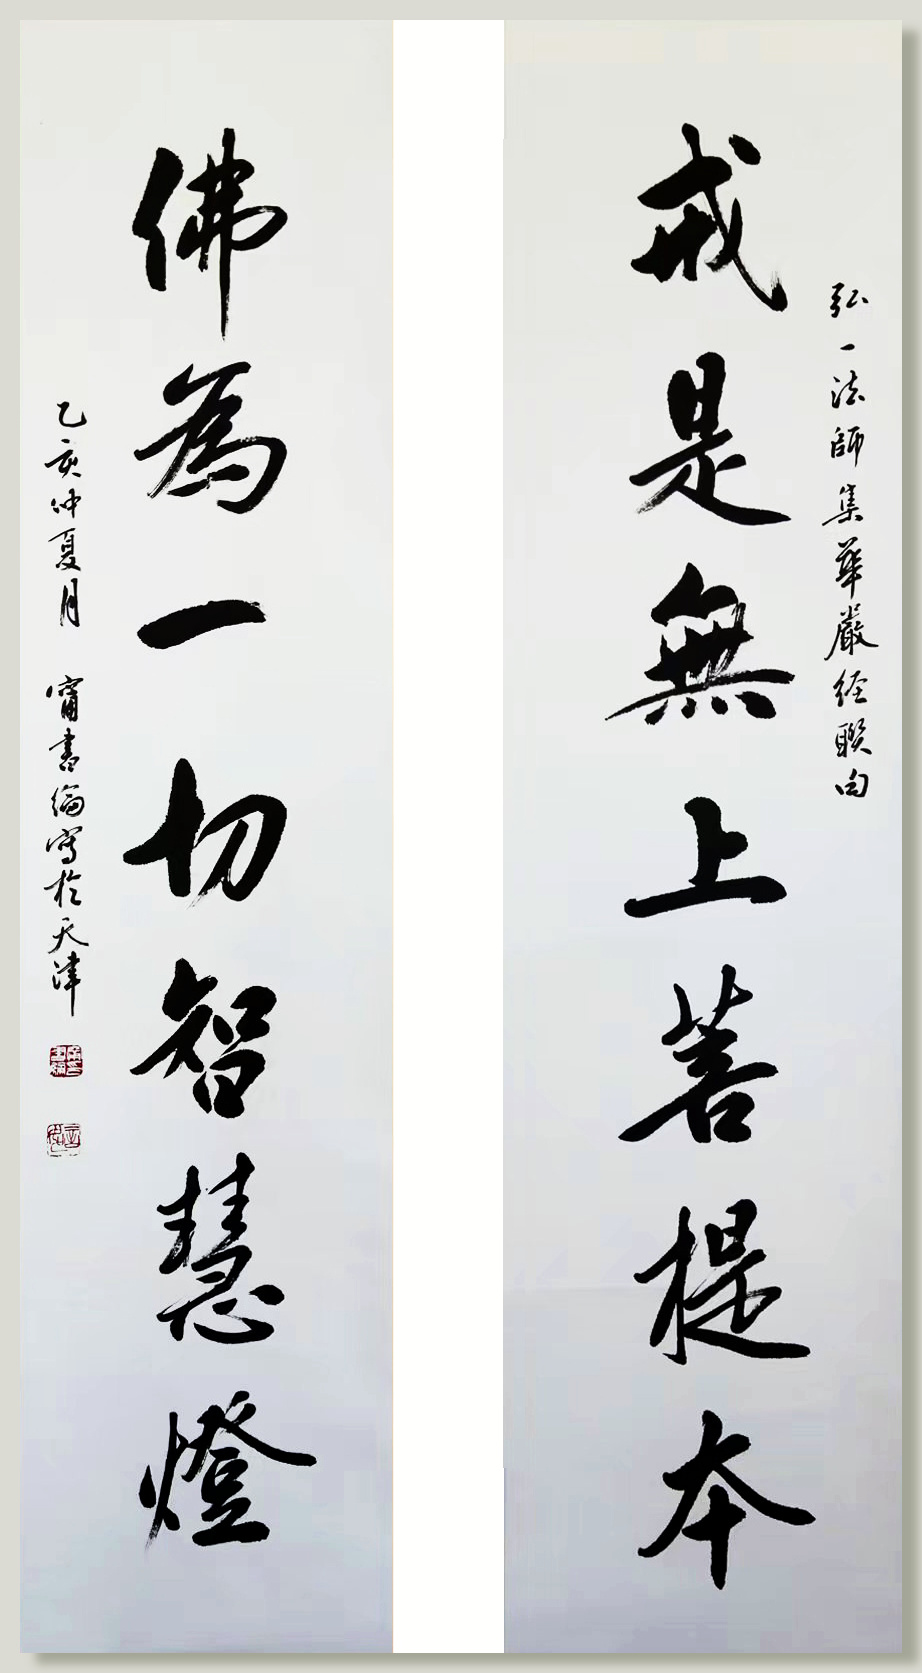 弘一法師集華嚴經聯句
戒是無上菩提本
佛為一切智慧燈
乙亥仲夏月 甯書綸寫於天津